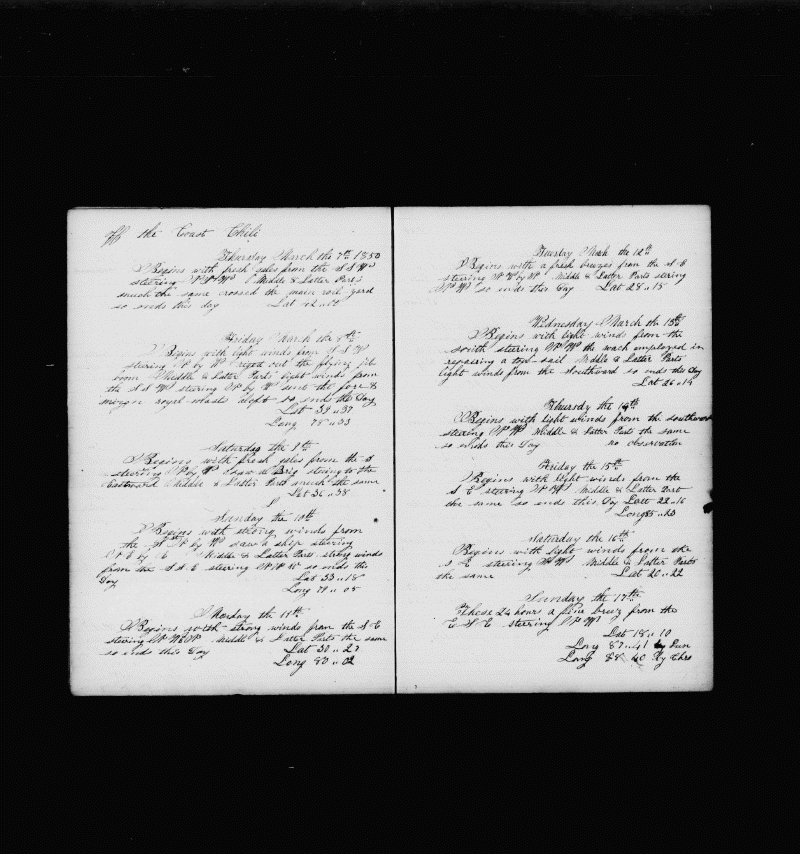 Off the Coast Chili
Thursday March the 7th 1850
Begins with fresh gales from the S S W
steering N N W Middle & Latter Parts
much the same crossed the main roil yard
so ends this day Lat 42
Friday March the 8th
Begins with light winds from S S W
steering N by W riged out the flying jib
boom Middle & Latter Parts light winds from
the S S W steering N by W sent the fore &
mizzen royal masts aloft so ends the Day
Lat 39 " 37
Long 78 " 33
Saturday the 9th
Begins with fresh gales from the S
steering N by W saw a Brig steing to the
Eastward Middle & Latter Parts much the same
Lat 36 " 38
Sunday the 10th
Begins with strong winds from
the by W saw a ship steering
by E Middle & Latter Parts strong winds
from the S S E steering N N W so ends this
Day Lat 33 " 18
Long 79 " 05
Monday the 11th
Begins with strong winds from the S E
steering N W by N Middle & Latter Parts the same
so ends this Day Lat 30 " 27
Long 80 " 02
Tuesday March the 12th
Begins with a fresh breezes from the S E
steering N W by N Middle & Latter Parts stering
N W so ends this Day Lat 28 " 18
Wednesday March the 13th
Begins with light winds from the
South steering N W the wach employed in
repairing a top-sail Middle & Latter Parts
light winds from the Southward so ends this Day
Lat 26 " 14
Thursdy the 14th
Begins with light winds from the southward
steering N W Middle & Latter Parts the same
so ends this Day no observation
Friday the 15th
Begins with light winds from the
S E steering N W Middle & Latter Part
the same so ends this Day Latt 22 " 16
Long 85 " 23
Saturday the 16th
Begins with light winds from the
S E steering N W Middle & Latter Parts
the same Lat 20 " 22
Sunday the 17th
These 24 hours a fine breez from the
E S E steering N W
Lat 18 " 10
Long 87 " 41 by Lun
Long 88 " 40 by Chro